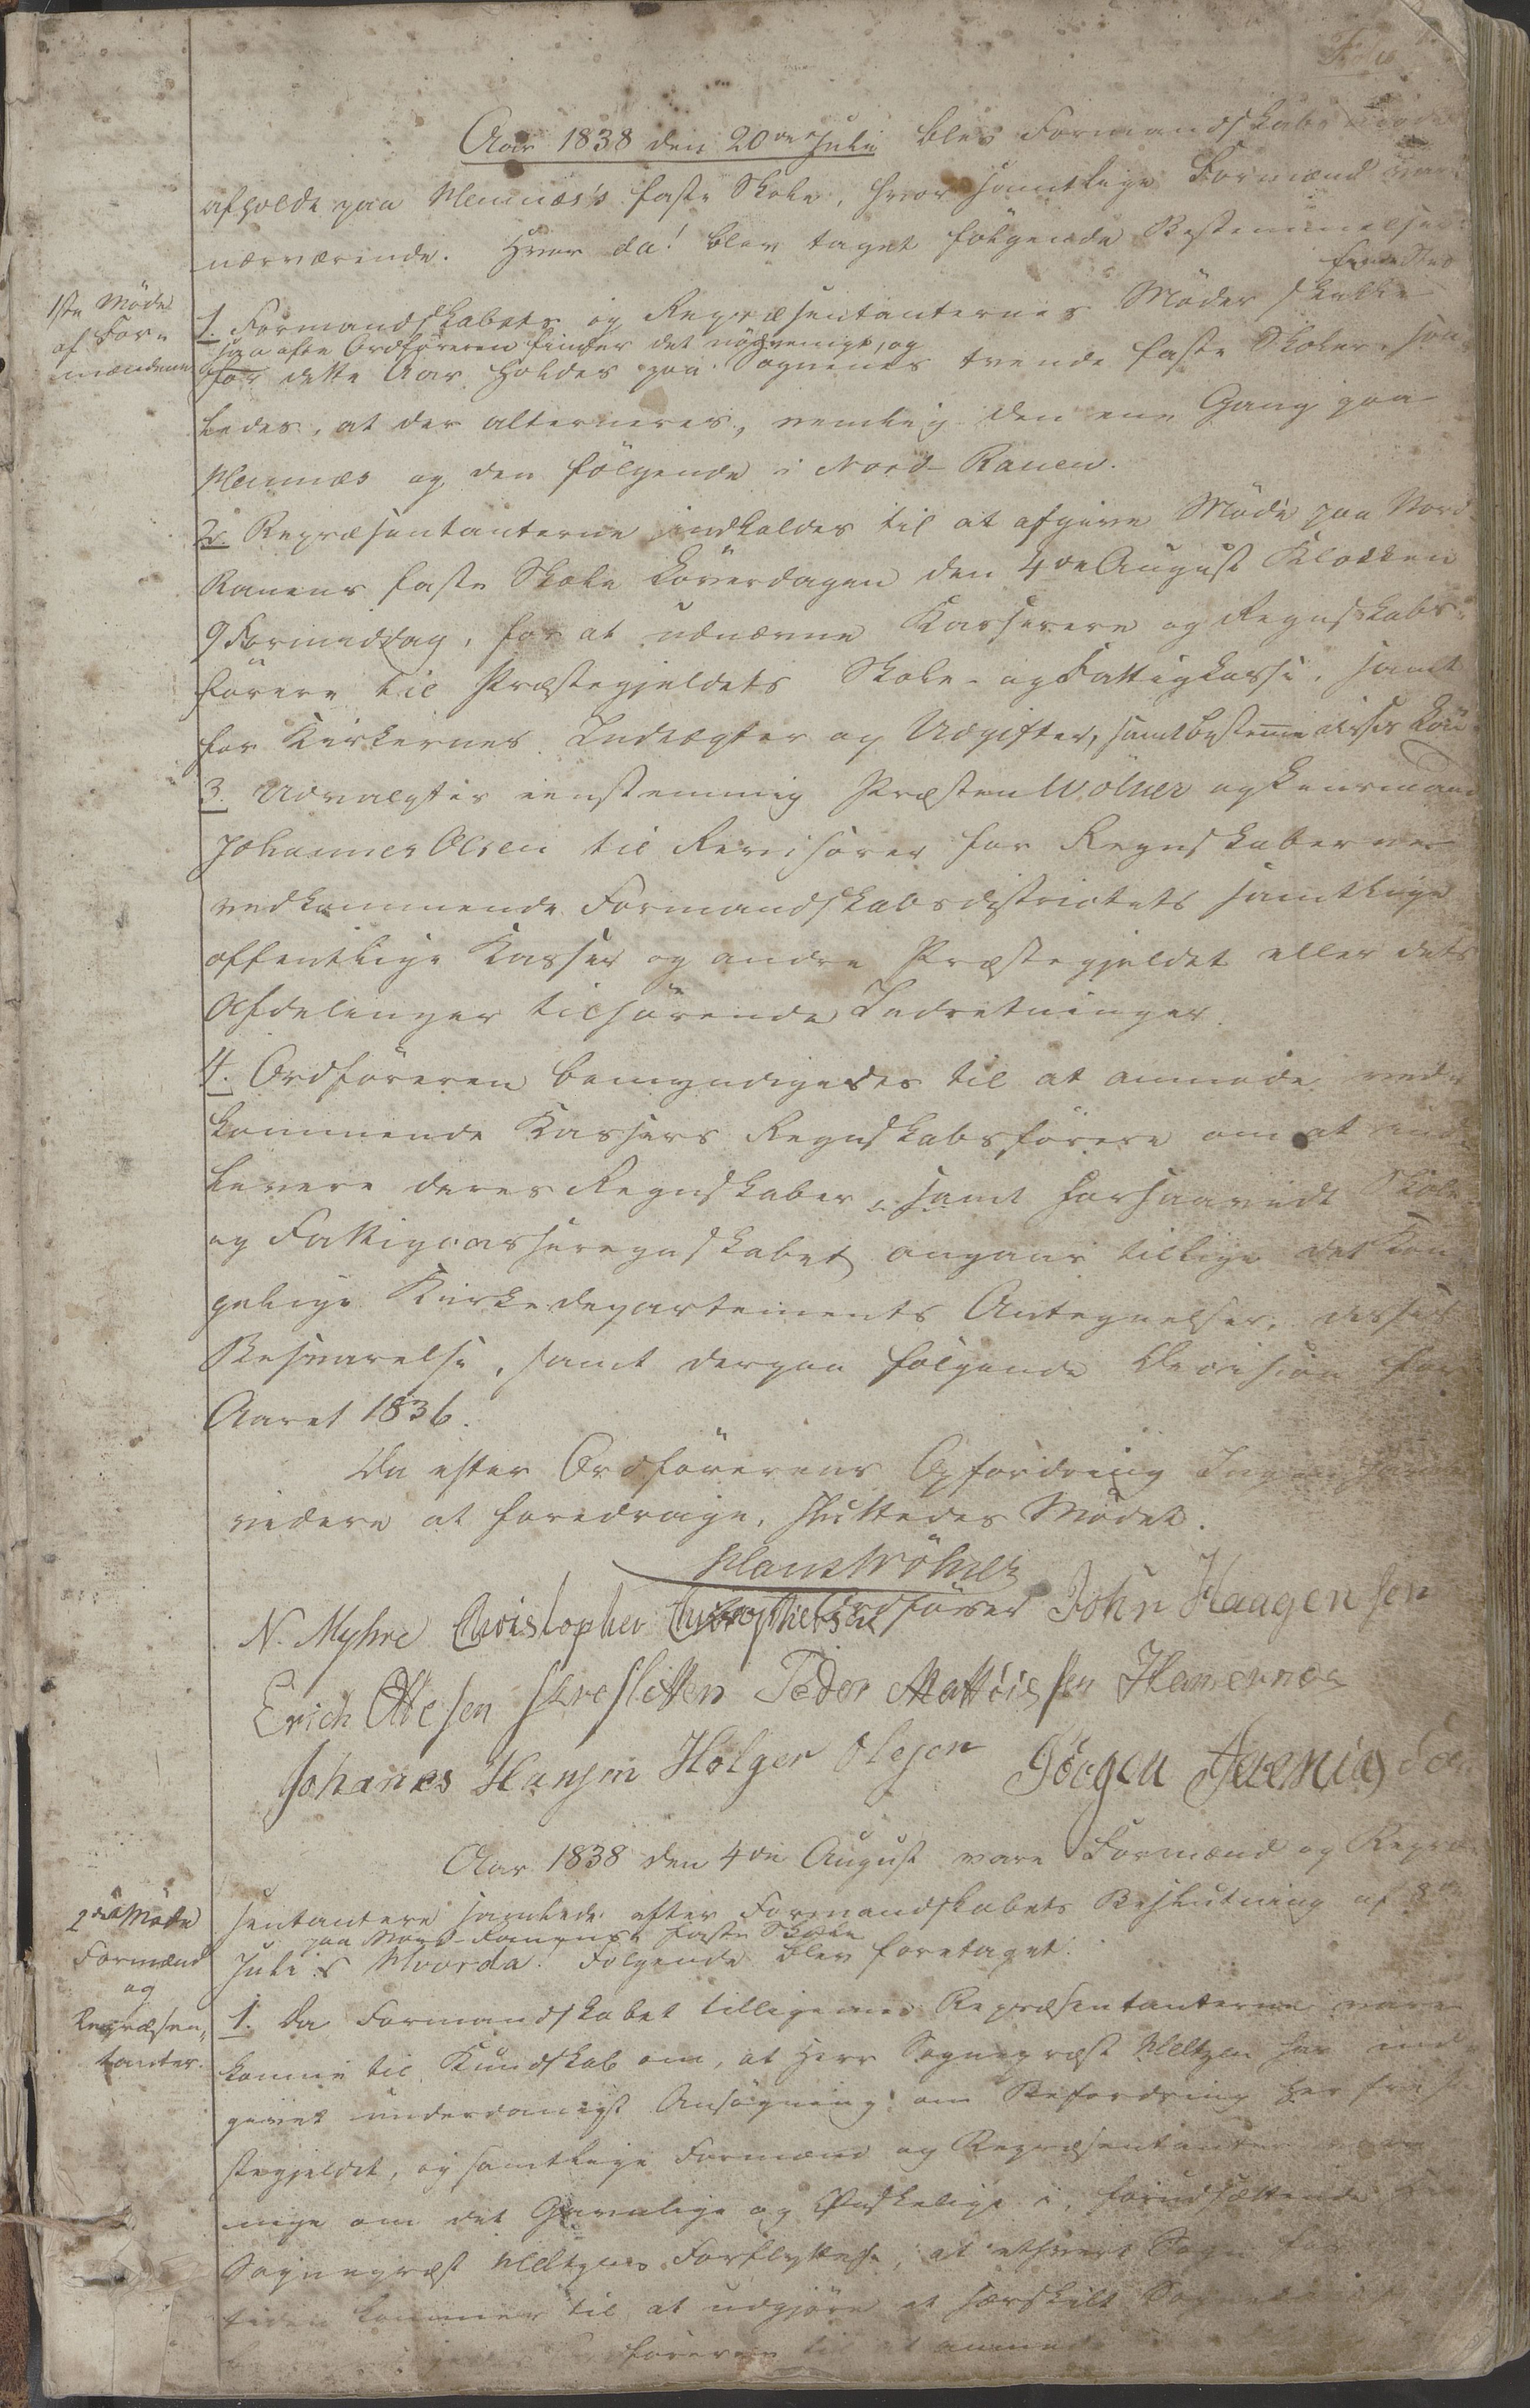 Aar 1838 den 20de Juli blev Formandskabsmøde
afholdt paa Hemnæs's faste Skole, hvor samtlige Formænd vare
nærværende. Hvor da! blev taget følgende Bestemmelser:
1ste Møde
af For-
mændene
1. Formandskabets og Repræsentanternes Møder skulle finde Sted
saa ofte Ordføreren finder det nødvendigt, og
for dette Aar holdes paa Sognenes tvende faste Skoler, saa-
ledes, at der alterneres, nemlig den ene Gang paa
Hemnæs og den følgende i Nord-Ranen.
2. Repræsentanterne indkaldes til at afgive Møde paa Nord
Ranens faste Skole Løverdagen den 4de August Klokken
9 Formiddag, for at udnævne Kasserere og Regnskabs-
førere til Præstegjeldets Skole- og Fattigkasse, samt
for Kirkernes Indtægter og Udgifter, samt bestemme disses Løn
3. Udvalgtes eenstemmig Præsten Wölner og Lensmand
Johannes Olsen til Revisorer for Regnskaberne
vedkommende Formandskabsdistrictets samtlige
offentlige Kasser og andre Præstegjeldet eller dets
Afdelinger tilhørende Indretninger.
4. Ordføreren bemyndigedes til at anmode ved-
kommende Kassers Regnskabsførere om at ind-
levere deres Regnskaber, samt forsaavidt Skole-
og Fattigcasseregnskabet angaaer tillige det Kon-
gelige Kirkedepartements Antegnelser, disses
Besvarelse, samt derpaa følgende Decision for
Aaret 1836.
Da efter Ordførerens Opfordring Ingen havde
videre at foredrage, sluttedes Mødet.
Hans Wölner
Ordfører
N. Myhre Christopher Christophersen John Haagensen
Erich Ottesen Peder Mattissen Hamernæs
Johanes Hansen Holger Olsen Jörgen
Aar 1838 den 4de August vare Formænd og Repræ-
2det Møde
Formænd
og
Repræsen-
tanter.
sentantere samlede efter Formandskabets Beslutning af
paa Nord-Ranens faste Skole
Juli Hvorda! Følgende blev foretaget:
1. Da Formandskabet tilligemed Repræsentanterne vare
komne til Kundskab om, at Herr Sognepræst Heltzen har ind-
givet underdanigst Ansøgning om Befordring her fra
stegjeldet, og samtlige Formænd og Repræsentanter vare
enige om det Gavnlige og Ønskelige i, forudsættende Herr
Sognepræst Heltzens Forflyttelse, at ethvert Sogn for
tiden kommer til at udgjøre et særskilt
føreren til at anmode